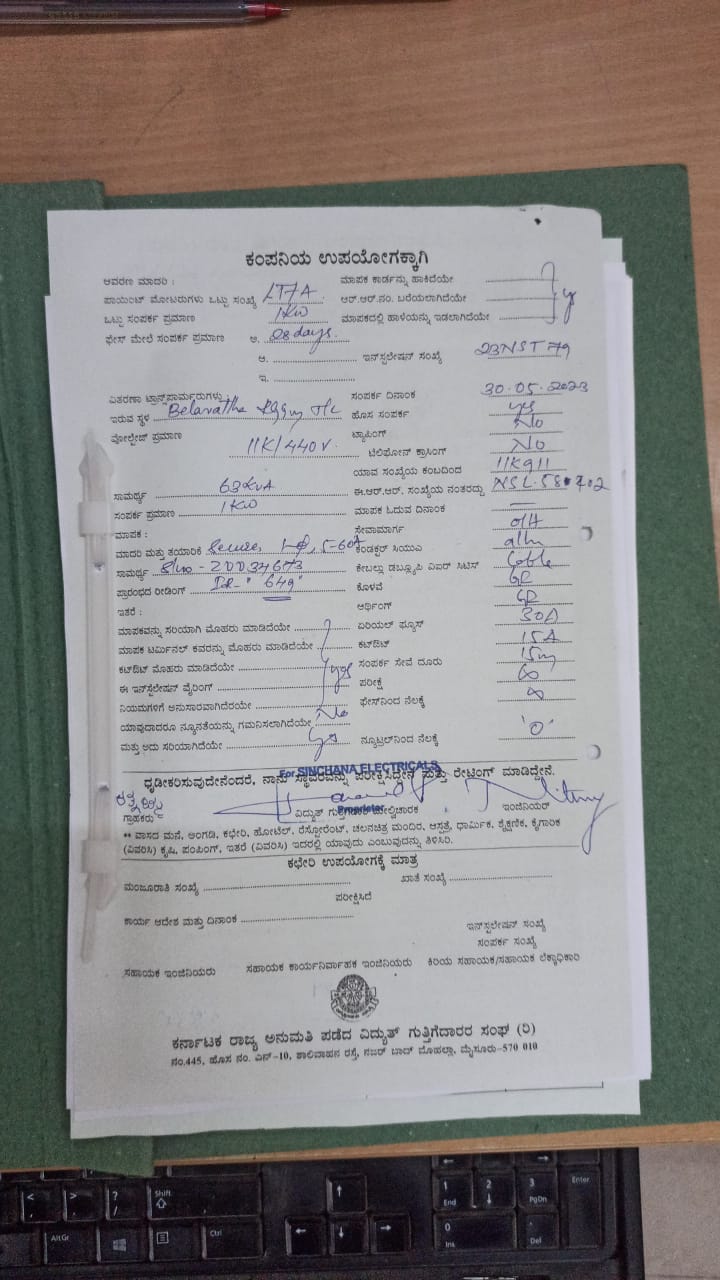 ಕಂಪನಿಯ ಉಪಯೋಗಕ್ಕಾಗಿ
ಆವರಣ ಮಾದರಿ :
ಮಾಪಕ ಕಾರ್ಡನ್ನು ಹಾಕಿದೆಯೇ
ಪಾಯಿಂಟ್ ಮೋಟರುಗಳು ಒಟ್ಟು ಸಂಖ್ಯೆ
ಆರ್.ಆರ್.ನಂ. ಬರೆಯಲಾಗಿದೆಯೇ
ಒಟ್ಟು ಸಂಪರ್ಕ ಪ್ರಮಾಣ 1KW ಮಾಪಕದಲ್ಲಿ ಹಾಳೆಯನ್ನು ಇಡಲಾಗಿದೆಯೇ
ಫೇಸ್ ಮೇಲೆ ಸಂಪರ್ಕ ಪ್ರಮಾಣ ಅ. 28 days.
ಆ. ಇನ್‌ಸ್ಟಲೇಷನ್ ಸಂಖ್ಯೆ 23NST79
ಇ.
ವಿತರಣಾ ಟ್ರಾನ್ಸ್‌ಪಾರ್ಮರುಗಳು ಸಂಪರ್ಕ ದಿನಾಂಕ 30.05.2023
ಇರುವ ಸ್ಥಳ Belavatha ಹೊಸ ಸಂಪರ್ಕ yes
ವೋಲ್ಟೇಜ್ ಪ್ರಮಾಣ 11K/440V. ಟ್ಯಾಪಿಂಗ್ No
ಟೆಲಿಫೋನ್ ಕ್ರಾಸಿಂಗ್ No
ಯಾವ ಸಂಖ್ಯೆಯ ಕಂಬದಿಂದ
ಸಾಮರ್ಥ್ಯ 63KVA ಈ.ಆರ್.ಆರ್. ಸಂಖ್ಯೆಯ ನಂತರದ್ದು
ಸಂಪರ್ಕ ಪ್ರಮಾಣ 1KW ಮಾಪಕ ಓದುವ ದಿನಾಂಕ
ಮಾಪಕ : ಸೇವಾಮಾರ್ಗ O/H
ಮಾದರಿ ಮತ್ತು ತಯಾರಿಕೆ Secure, 1-Φ, 5-60A ಕಂಡಕ್ಟರ್ ಸಿಯುವಿ
ಸಾಮರ್ಥ್ಯ S/no - ZDD34673 ಕೇಬಲ್ಲು ಡಬ್ಲ್ಯೂಪಿ ವಿಐರ್ ಸಿಟಿಸ್ Cable
ಪ್ರಾರಂಭದ ರೀಡಿಂಗ್ IR - "649" ಕೊಳವೆ GP
ಇತರೆ : ಆರ್ಥಿಂಗ್ GP
ಮಾಪಕವನ್ನು ಸರಿಯಾಗಿ ಮೊಹರು ಮಾಡಿದೆಯೇ ಏರಿಯಲ್ ಫ್ಯೂಸ್ 30A
ಮಾಪಕ ಟರ್ಮಿನಲ್ ಕವರನ್ನು ಮೊಹರು ಮಾಡಿದೆಯೇ ಕಟ್‌ಔಟ್ 15A
ಕಟ್‌ಔಟ್ ಮೊಹರು ಮಾಡಿದೆಯೇ yes ಸಂಪರ್ಕ ಸೇವೆ ದೂರು 15m
ಈ ಇನ್‌ಸ್ಟಲೇಷನ್ ವೈರಿಂಗ್ ಪರೀಕ್ಷೆ ∞
ನಿಯಮಗಳಿಗೆ ಅನುಸಾರವಾಗಿದೆಯೇ ಫೇಸ್‌ನಿಂದ ನೆಲಕ್ಕೆ ∞
ಯಾವುದಾದರೂ ನ್ಯೂನತೆಯನ್ನು ಗಮನಿಸಲಾಗಿದೆಯೇ No
ಮತ್ತು ಅದು ಸರಿಯಾಗಿದೆಯೇ yes ನ್ಯೂಟ್ರಲ್‌ನಿಂದ ನೆಲಕ್ಕೆ '0'
ಧೃಡೀಕರಿಸುವುದೇನೆಂದರೆ, ನಾನು ಸ್ಥಾವರವನ್ನು ಪರೀಕ್ಷಿಸಿದ್ದೇನೆ ಮತ್ತು ರೇಟಿಂಗ್ ಮಾಡಿದ್ದೇನೆ.
For SINCHANA ELECTRICALS
Proprietor
ಗ್ರಾಹಕರು ವಿದ್ಯುತ್ ಗುತ್ತಿಗೆದಾರ ಮೇಲ್ವಿಚಾರಕ ಇಂಜಿನಿಯರ್
** ವಾಸದ ಮನೆ, ಅಂಗಡಿ, ಕಛೇರಿ, ಹೋಟೆಲ್, ರೆಸ್ಟೋರೆಂಟ್, ಚಲನಚಿತ್ರ ಮಂದಿರ, ಆಸ್ಪತ್ರೆ, ಧಾರ್ಮಿಕ, ಶೈಕ್ಷಣಿಕ, ಕೈಗಾರಿಕ
(ವಿವರಿಸಿ) ಕೃಷಿ, ಪಂಪಿಂಗ್, ಇತರೆ (ವಿವರಿಸಿ) ಇದರಲ್ಲಿ ಯಾವುದು ಎಂಬುವುದನ್ನು ತಿಳಿಸಿರಿ.
ಕಛೇರಿ ಉಪಯೋಗಕ್ಕೆ ಮಾತ್ರ
ಮಂಜೂರಾತಿ ಸಂಖ್ಯೆ ಖಾತೆ ಸಂಖ್ಯೆ
ಪರೀಕ್ಷಿಸಿದೆ
ಕಾರ್ಯ ಆದೇಶ ಮತ್ತು ದಿನಾಂಕ
ಇನ್‌ಸ್ಟಲೇಷನ್ ಸಂಖ್ಯೆ
ಸಂಪರ್ಕ ಸಂಖ್ಯೆ
ಸಹಾಯಕ ಇಂಜಿನಿಯರು ಸಹಾಯಕ ಕಾರ್ಯನಿರ್ವಾಹಕ ಇಂಜಿನಿಯರು ಕಿರಿಯ ಸಹಾಯಕ/ಸಹಾಯಕ ಲೆಕ್ಕಾಧಿಕಾರಿ
ಕರ್ನಾಟಕ ರಾಜ್ಯ ಅನುಮತಿ ಪಡೆದ ವಿದ್ಯುತ್ ಗುತ್ತಿಗೆದಾರರ ಸಂಘ (ರಿ)
ನಂ.445, ಹೊಸ ನಂ. ಎನ್-10, ಶಾಲಿವಾಹನ ರಸ್ತೆ, ನಜರ್ ಬಾದ್ ಮೊಹಲ್ಲಾ, ಮೈಸೂರು-570 010